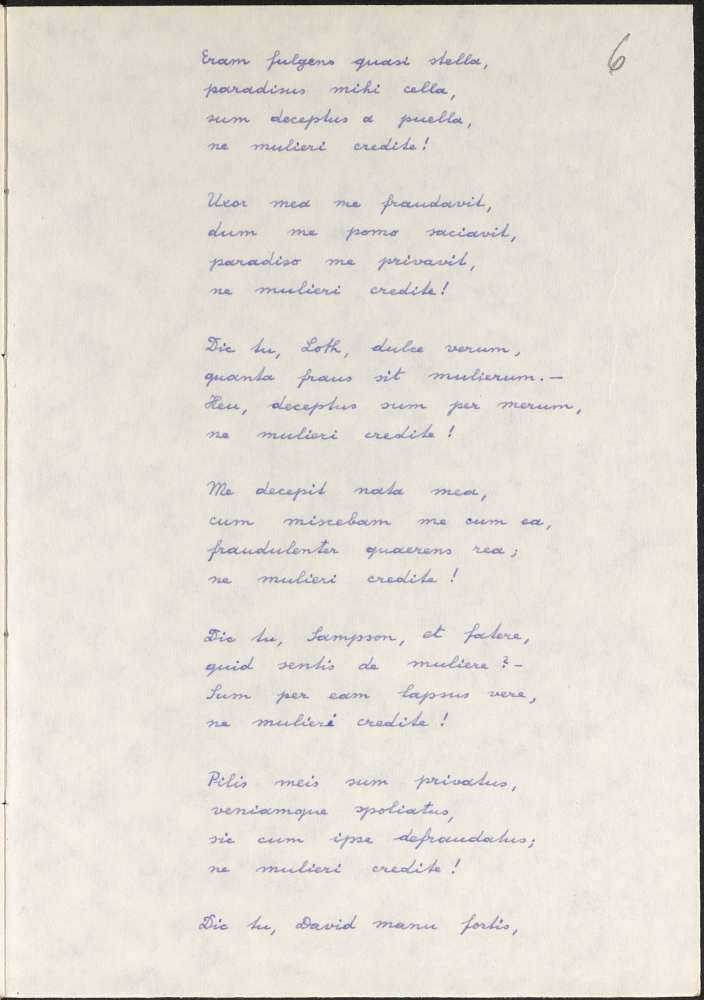 6
Eram fulgens quasi stella,
paradisus mihi cella,
sum deceptus a puella,
ne mulieri credite!
Uxor mea me fraudavit,
dum me pomo saciavit,
paradiso me privavit,
ne mulieri credite!
Dic tu, Loth, dulce verum,
quanta fraus sit mulierum.—
Heu, deceptus sum per merum,
ne mulieri credite!
Me decepit nata mea,
cum miscebam me cum ea,
fraudulenter quaerens rea;
ne mulieri credite!
Dic tu, Sampson, et fatere,
quid sentis de muliere?—
Sum per eam lapsus vere,
ne mulieri credite!
Pilis meis sum privatus,
veniamque spoliatus,
sic cum ipse defraudatus;
ne mulieri credite!
Dic tu, David manu fortis,